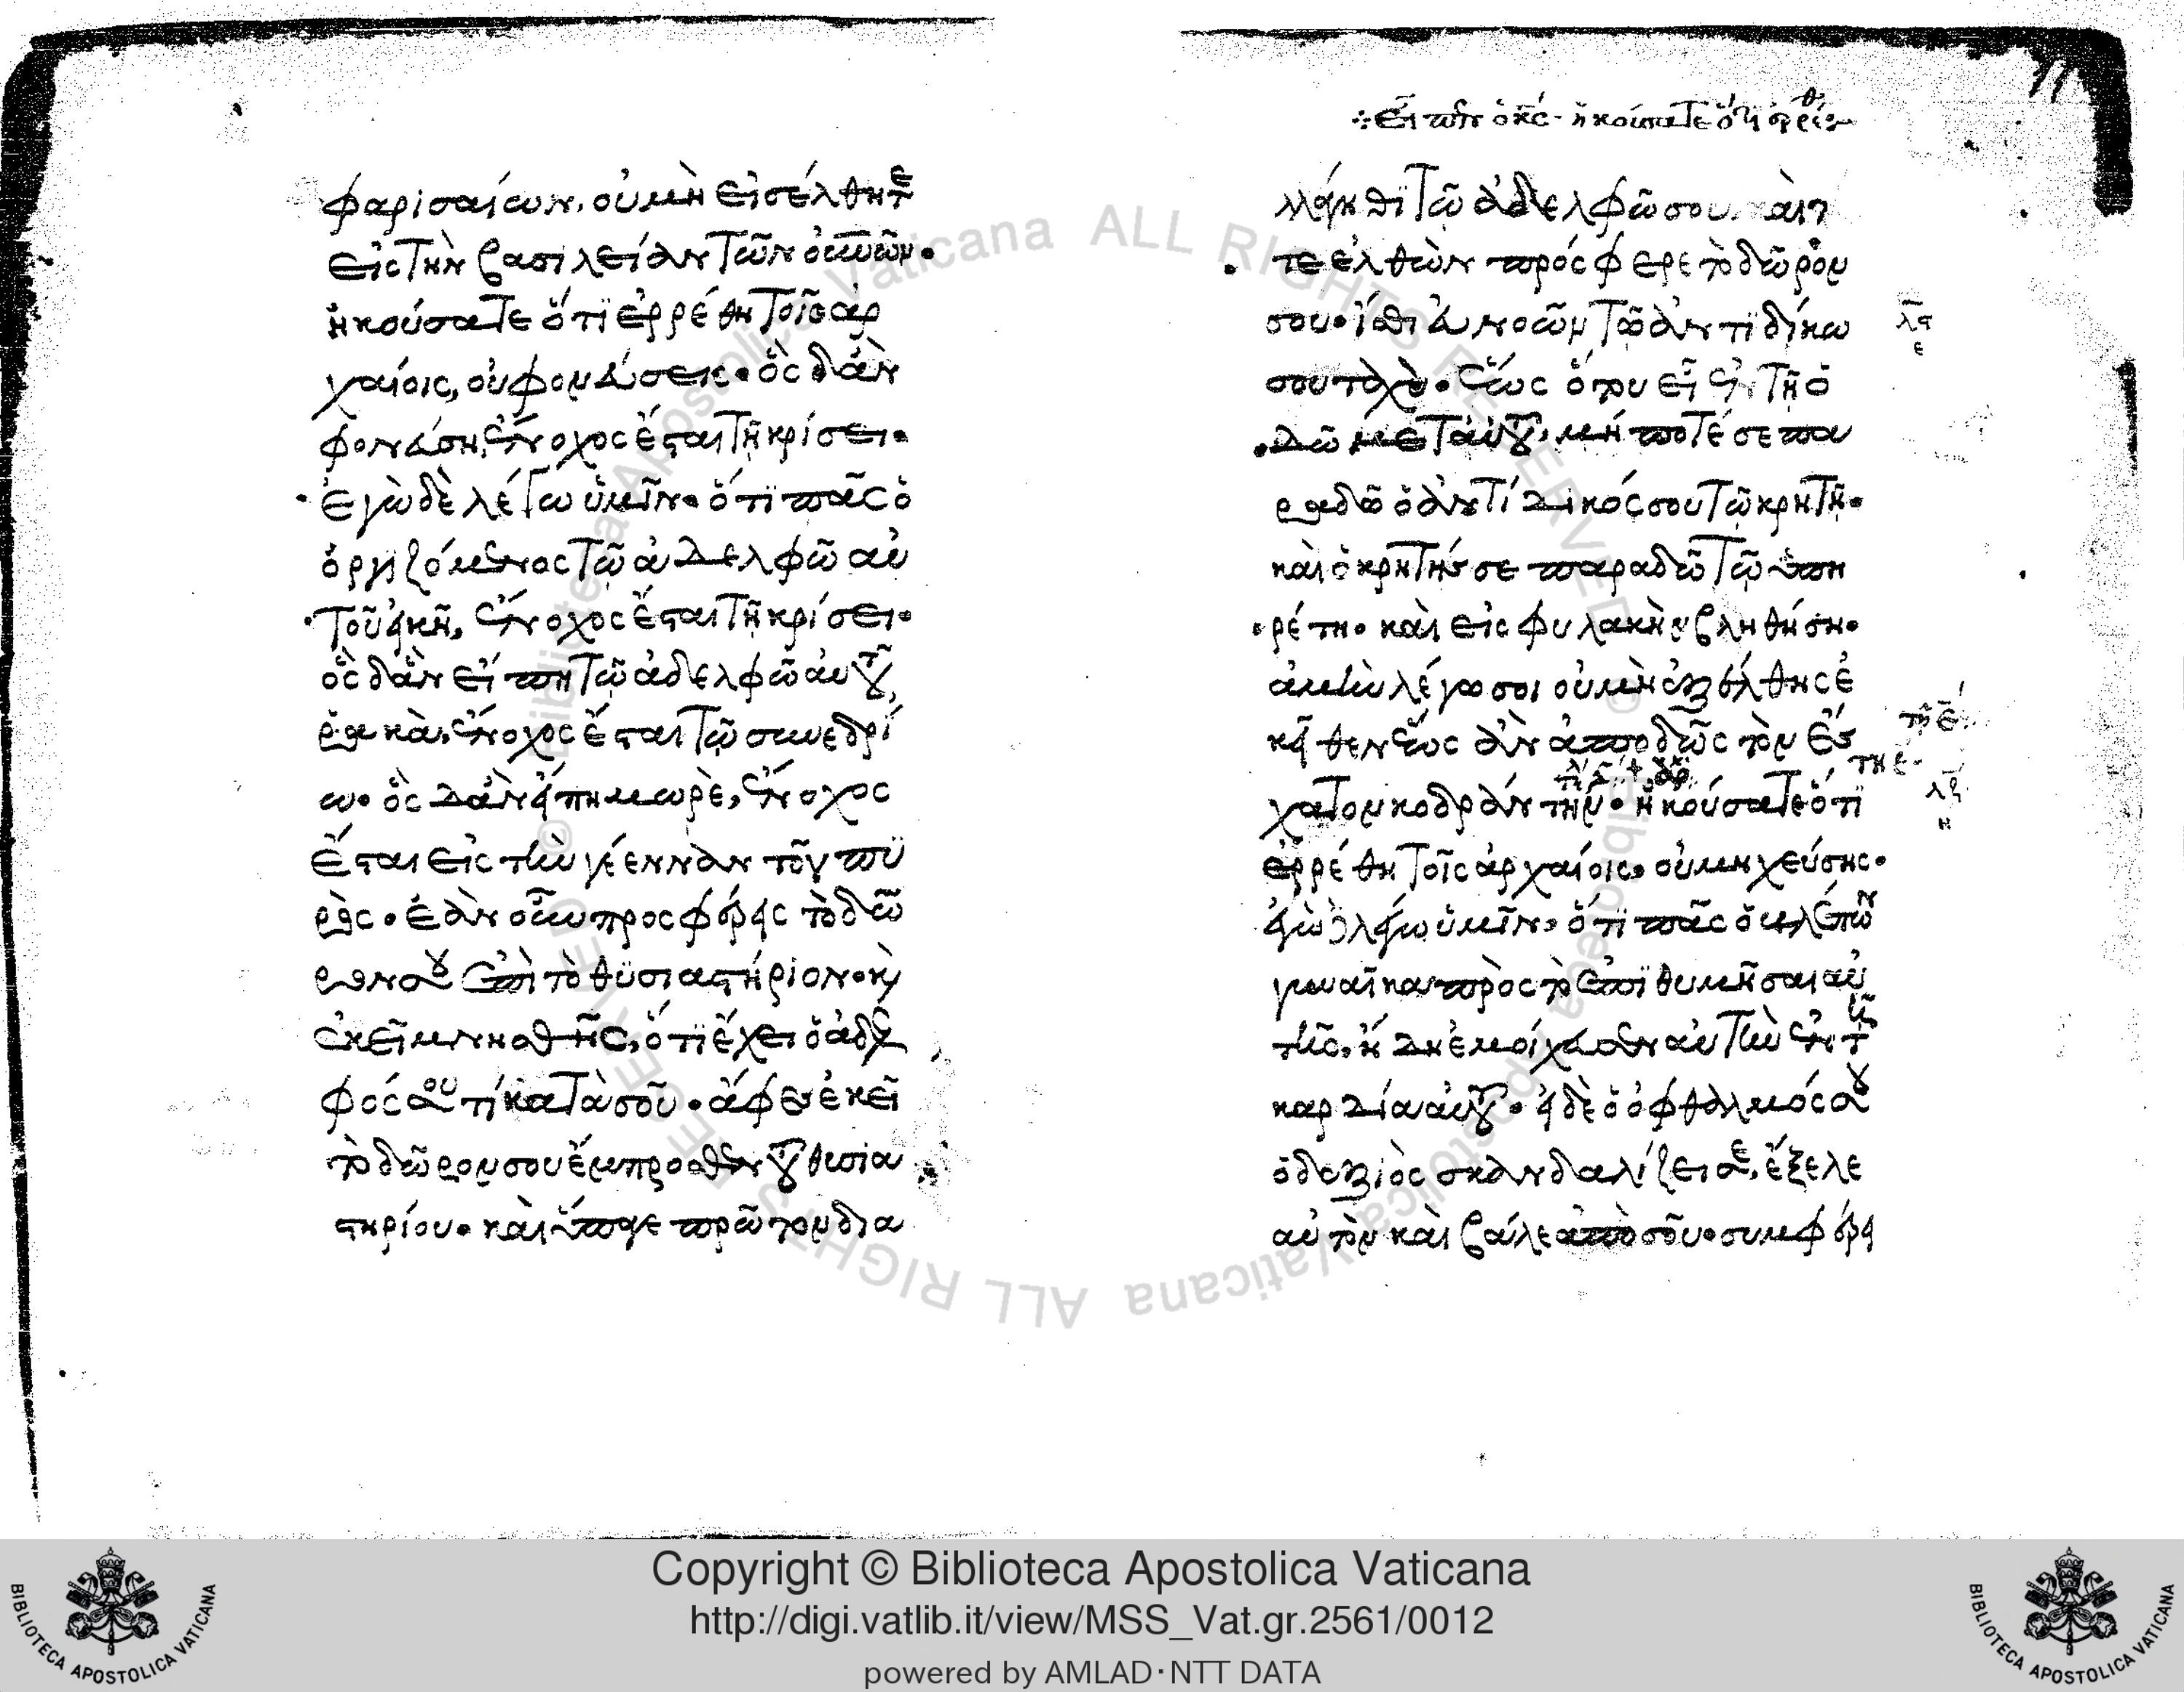 φαρισαίων, οὐ μὴ εἰσέλθητε
εἰς τὴν βασιλείαν τῶν οὐνῶν.
ἠκούσατε ὅτι ἐρρέθη τοῖς ἀρ
χαίοις, οὐ φονεύσεις. ὃς δ' ἂν
φονεύση, ἔνοχος ἔσται τῆ κρίσει.
ἐγὼ δὲ λέγω ὑμῖν. ὅτι πᾶς ὁ
ὀργιζόμενος τῶ ἀδελφῶ αὐ
τοῦ εἰκῆ, ἔνοχος ἔσται τῆ κρίσει.
ὃς δ' ἂν εἴπη τῶ ἀδελφῶ αὐτοῦ,
ῥακὰ, ἔνοχος ἔσται τῶ συνεδρί
ω. ὃς δ' ἂν εἴπη μωρὲ, ἔνοχος
ἔσται εἰς τὴν γέενναν τοῦ πυ
ρός. ἐὰν οὖν προσφέρης τὸ δῶ
ρον σου ἐπὶ τὸ θυσιαστήριον. κ
ἐκεῖ μνησθῆς, ὅτι ἔχει ὁ ἀδελ
φός σου τί κατὰ σοῦ. ἄφες ἐκεῖ
τὸ δῶρον σου ἔμπροσθεν τοῦ θυσια
στηρίου. καὶ ὕπαγε πρῶτον δια
+ Εἶπεν ὁ κς. ἠκούσατε ὅτι ἐρρέθ
λλάγηθι τῶ ἀδελφῶ σου. καὶ τ
τε ἐλθὼν πρόσφερε τὸ δῶρον
σου. ἴσθι εὐνοῶν τῶ ἀντιδίκω
λϛ
ε
σου ταχὺ. ἕως ὅτου εἶ ἐν τῆ ὁ
δῶ μετ' αὐτοῦ, μή ποτέ σε πα
ραδῶ ὁ ἀντίδικός σου τῶ κριτῆ.
καὶ ὁ κριτής σε παραδῶ τῶ ὑπη
ρέτη. καὶ εἰς φυλακὴν βληθήση.
ἀμὴν λέγω σοι οὐ μὴ ἐξέλθης ἐ
κεῖθεν ἕως ἂν ἀποδῶς τὸν ἔσ
χατον κοδράντην. ἠκούσατε ὅτι
λζ
ἐρρέθη τοῖς ἀρχαίοις. οὐ μοιχεύσης.
ἐγὼ δὲ λέγω ὑμῖν, ὅτι πᾶς ὁ βλέπων
γυναῖκα πρὸς τὸ ἐπιθυμῆσαι αὐ
τὴν, ἤδη ἐμοίχευσεν αὐτὴν ἐν τῆ
καρδία αὐτοῦ. εἰ δὲ ὁ ὀφθαλμός σου
ὁ δεξιὸς σκανδαλίζει σε, ἔξελε
αὐτὸν καὶ βάλε ἀπὸ σοῦ. συμφέρει
Copyright © Biblioteca Apostolica Vaticana
http://digi.vatlib.it/view/MSS_Vat.gr.2561/0012
powered by AMLAD·NTT DATA
BIBLIOTECA APOSTOLICA VATICANA
BIBLIOTECA APOSTOLICA VATICANA
© Biblioteca Apostolica Vaticana ALL RIGHTS RESERVED
© Biblioteca Apostolica Vaticana ALL RIGHTS RESERVED